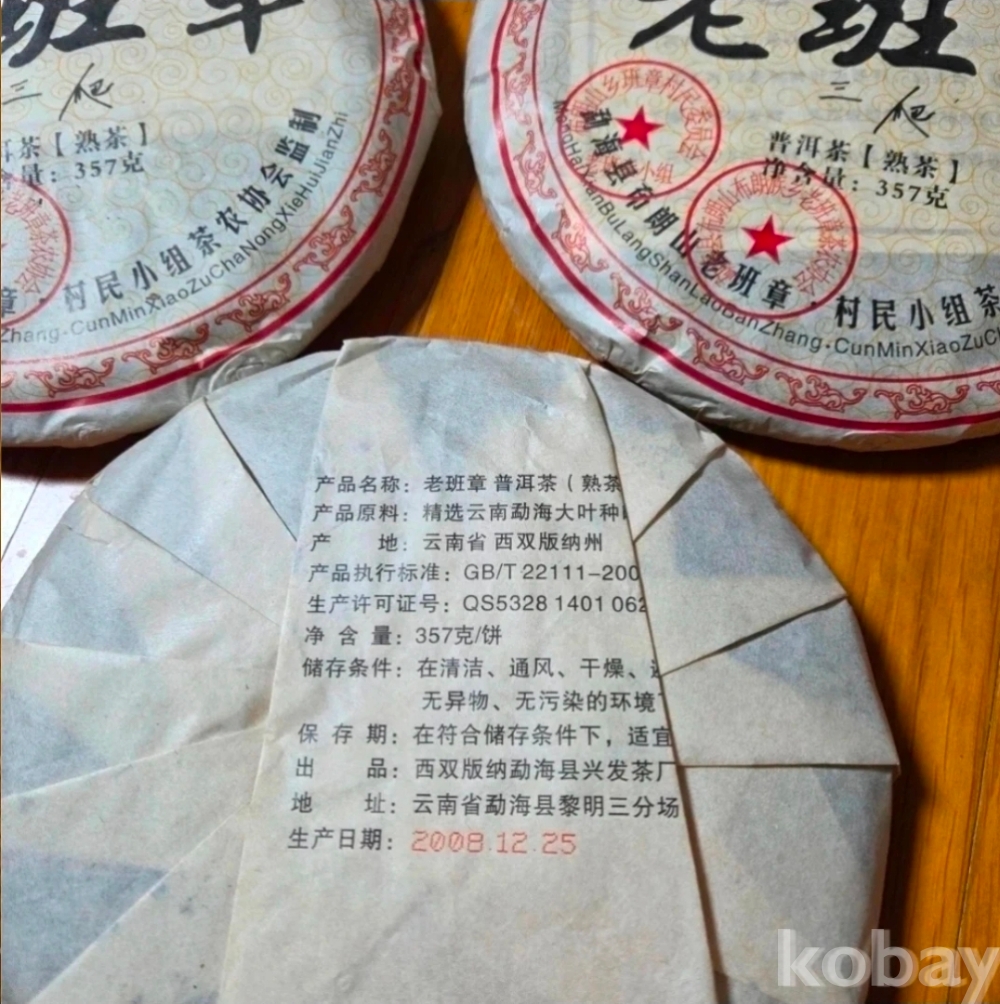 班章
三爬
洱茶【熟茶】
含量：357克
章·村民小组茶农协会监制
Zhang·CunMinXiaoZuChaNongXieHuiJianZhi
老班
三爬
普洱茶【熟茶】
净含量：357克
乡老班章村民委员会
小组
布朗山布朗族乡老班章茶农协会
勐海县布朗山老班章·村民小组茶
MengHaiXianBuLangShanLaoBanZhang·CunMinXiaoZuCh
产品名称：老班章 普洱茶（熟茶
产品原料：精选云南勐海大叶种
产 地：云南省 西双版纳州
产品执行标准：GB/T 22111-200
生产许可证号：QS5328 1401 062
净 含 量：357克/饼
储存条件：在清洁、通风、干燥、
无异物、无污染的环境
保 存 期：在符合储存条件下，适宜
出 品：西双版纳勐海县兴发茶厂
地 址：云南省勐海县黎明三分场
生产日期：2008.12.25
kobay